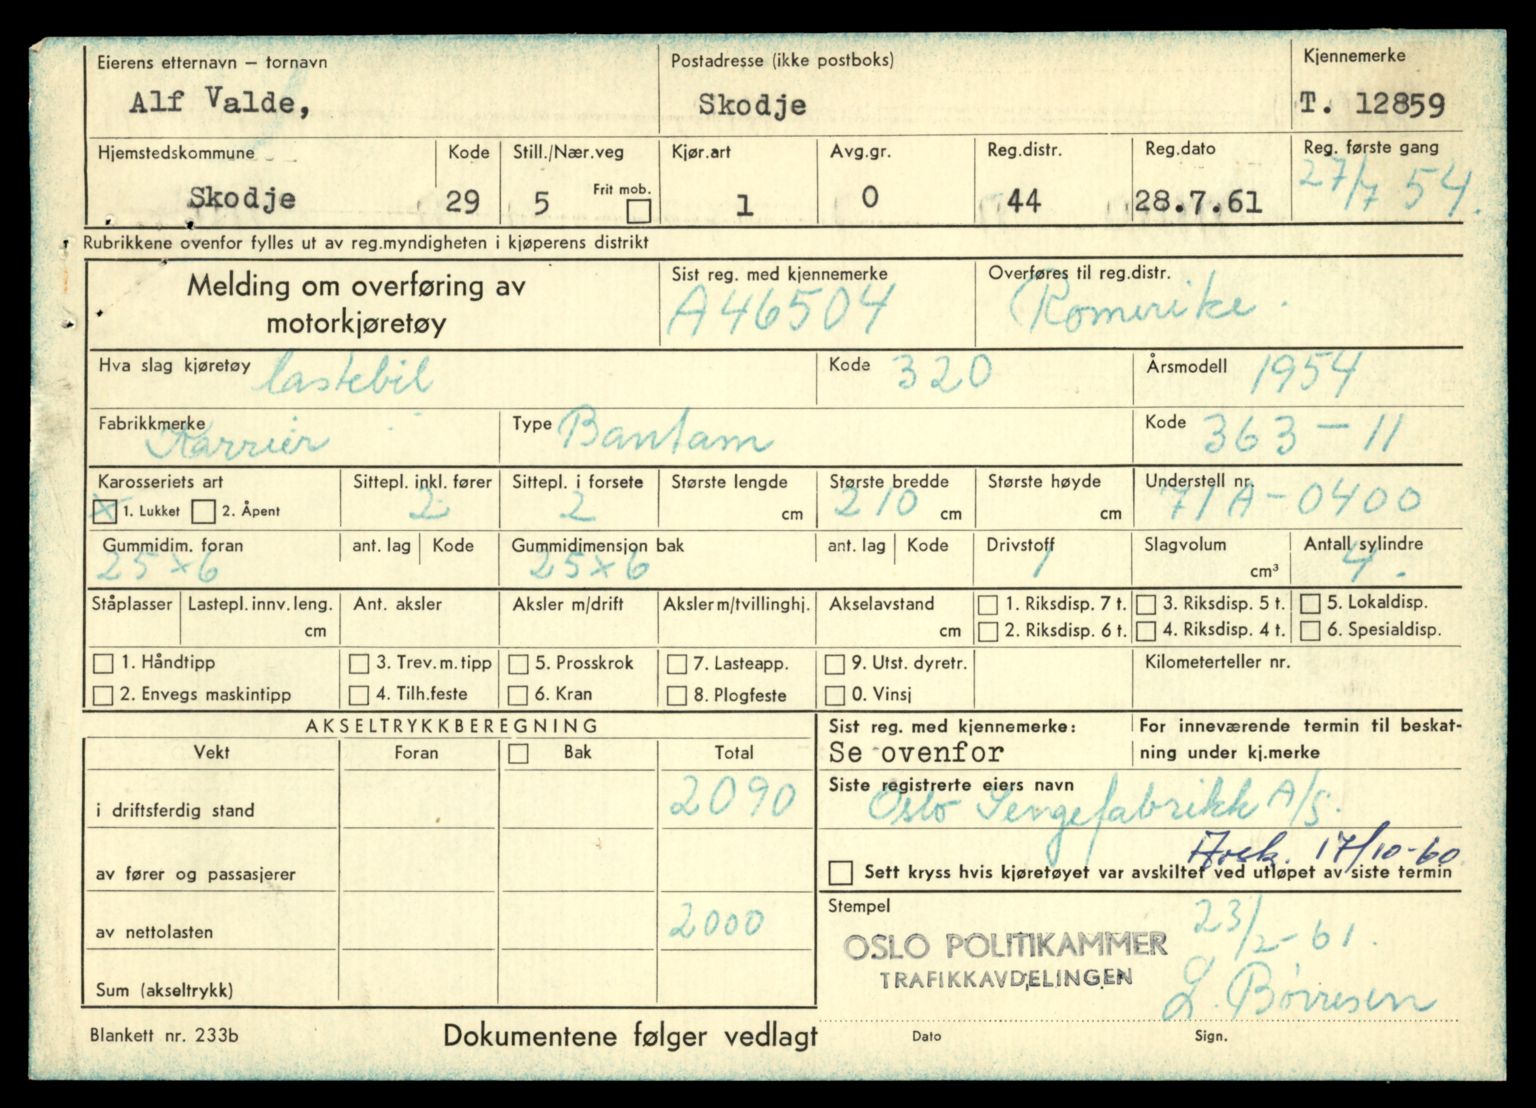 Eierens etternavn – fornavn Postadresse (ikke postboks) Kjennemerke
Alf Valde, Skodje T. 12859
Hjemstedskommune Kode Still./Nær.veg Kjør.art Avg.gr. Reg.distr. Reg.dato Reg. første gang
Skodje 29 5 Frit mob. 1 0 44 28.7.61 27/7 54.
Rubrikkene ovenfor fylles ut av reg.myndigheten i kjøperens distrikt
Melding om overføring av Sist reg. med kjennemerke Overføres til reg.distr.
motorkjøretøy A46504 Romerike.
Hva slag kjøretøy lastebil Kode 320 Årsmodell 1954
Fabrikkmerke Karrier Type Bantam Kode 363-11
Karosseriets art Sittepl. inkl. fører Sittepl. i forsete Største lengde Største bredde Største høyde Understell nr.
x 1. Lukket 2. Åpent 2 2 cm 210 cm cm 71A-0400
Gummidim. foran ant. lag Kode Gummidimensjon bak ant. lag Kode Drivstoff Slagvolum Antall sylindre
25x6 25x6 1 cm³ 4.
Ståplasser Lastepl. innv. leng. Ant. aksler Aksler m/drift Aksler m/tvillinghj. Akselavstand 1. Riksdisp. 7 t. 3. Riksdisp. 5 t. 5. Lokaldisp.
cm cm 2. Riksdisp. 6 t. 4. Riksdisp. 4 t. 6. Spesialdisp.
1. Håndtipp 3. Trev.m.tipp 5. Prosskrok 7. Lasteapp. 9. Utst. dyretr. Kilometerteller nr.
2. Envegs maskintipp 4. Tilh.feste 6. Kran 8. Plogfeste 0. Vinsj
AKSELTRYKKBEREGNING Sist reg. med kjennemerke: For inneværende termin til beskat-
Vekt Foran Bak Total Se ovenfor ning under kj.merke
i driftsferdig stand 2090 Siste registrerte eiers navn
Oslo Sengefabrikk A/S.
17/10-60
av fører og passasjerer Sett kryss hvis kjøretøyet var avskiltet ved utløpet av siste termin
av nettolasten 2000 Stempel 23/2-61.
OSLO POLITIKAMMER
TRAFIKKAVDELINGEN
Sum (akseltrykk) L. Børresen
Blankett nr. 233b Dokumentene følger vedlagt Dato Sign.